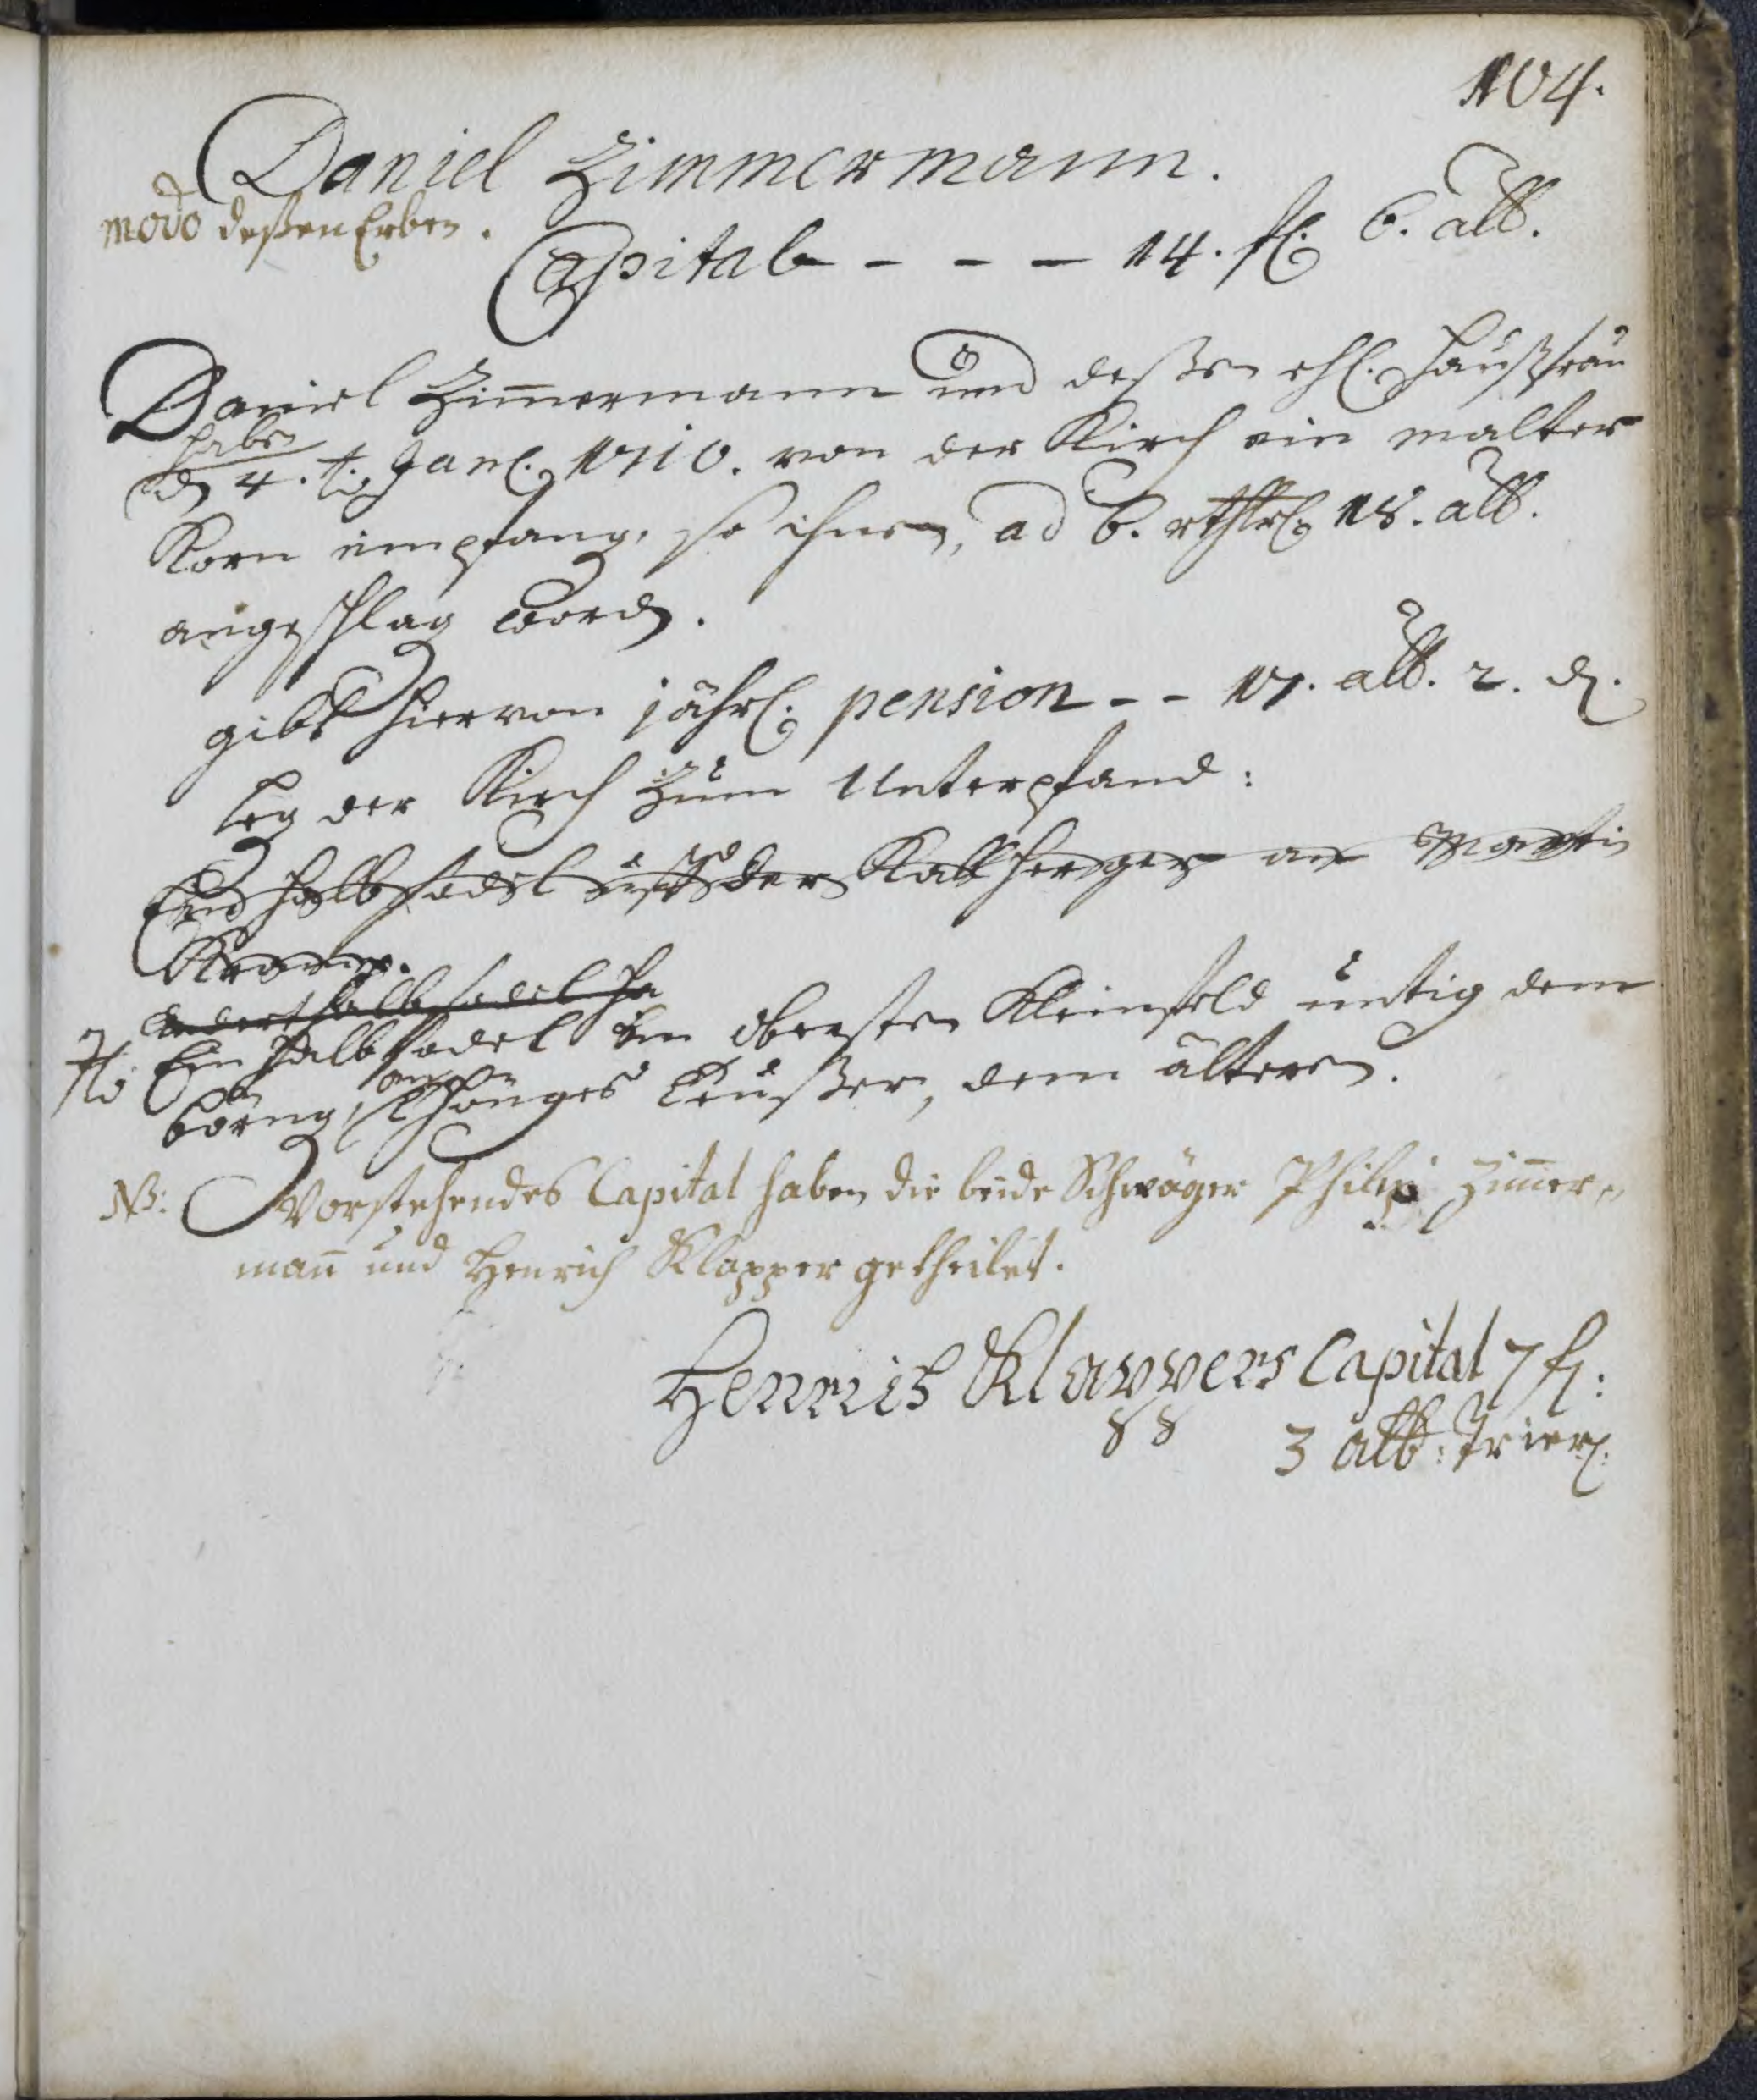 104.
Daniel Zimmermann.
modo deßen Erben.
Capital - - - 14. fl. 6. alb.
Daniel Zimmermann und deßen ehl. Haußfrau
haben
d. 4. t. Janl. 1710. von der Kirch ein malter
Korn empfang, so ihnen, ad 6. rthlr. 18. alb.
angeschlag word.
gibt hiervon jährl. pension - - 17. alb. 2. d.
leg der Kirch zum Unterpfand:
Ein halb sadel auff der an Martin
anderthalb sadel
Ein halb sadel im obersten Kleinfeld untig dem
an
börng, Thönges Leußer, dem älteren.
NB: Vorstehendes Capital haben die beide Schwäger Philip Zimer„
mañ und Henrich Klapper getheilet.
Henrich Klappers Capital 7 fl:
3 alb: Trier.